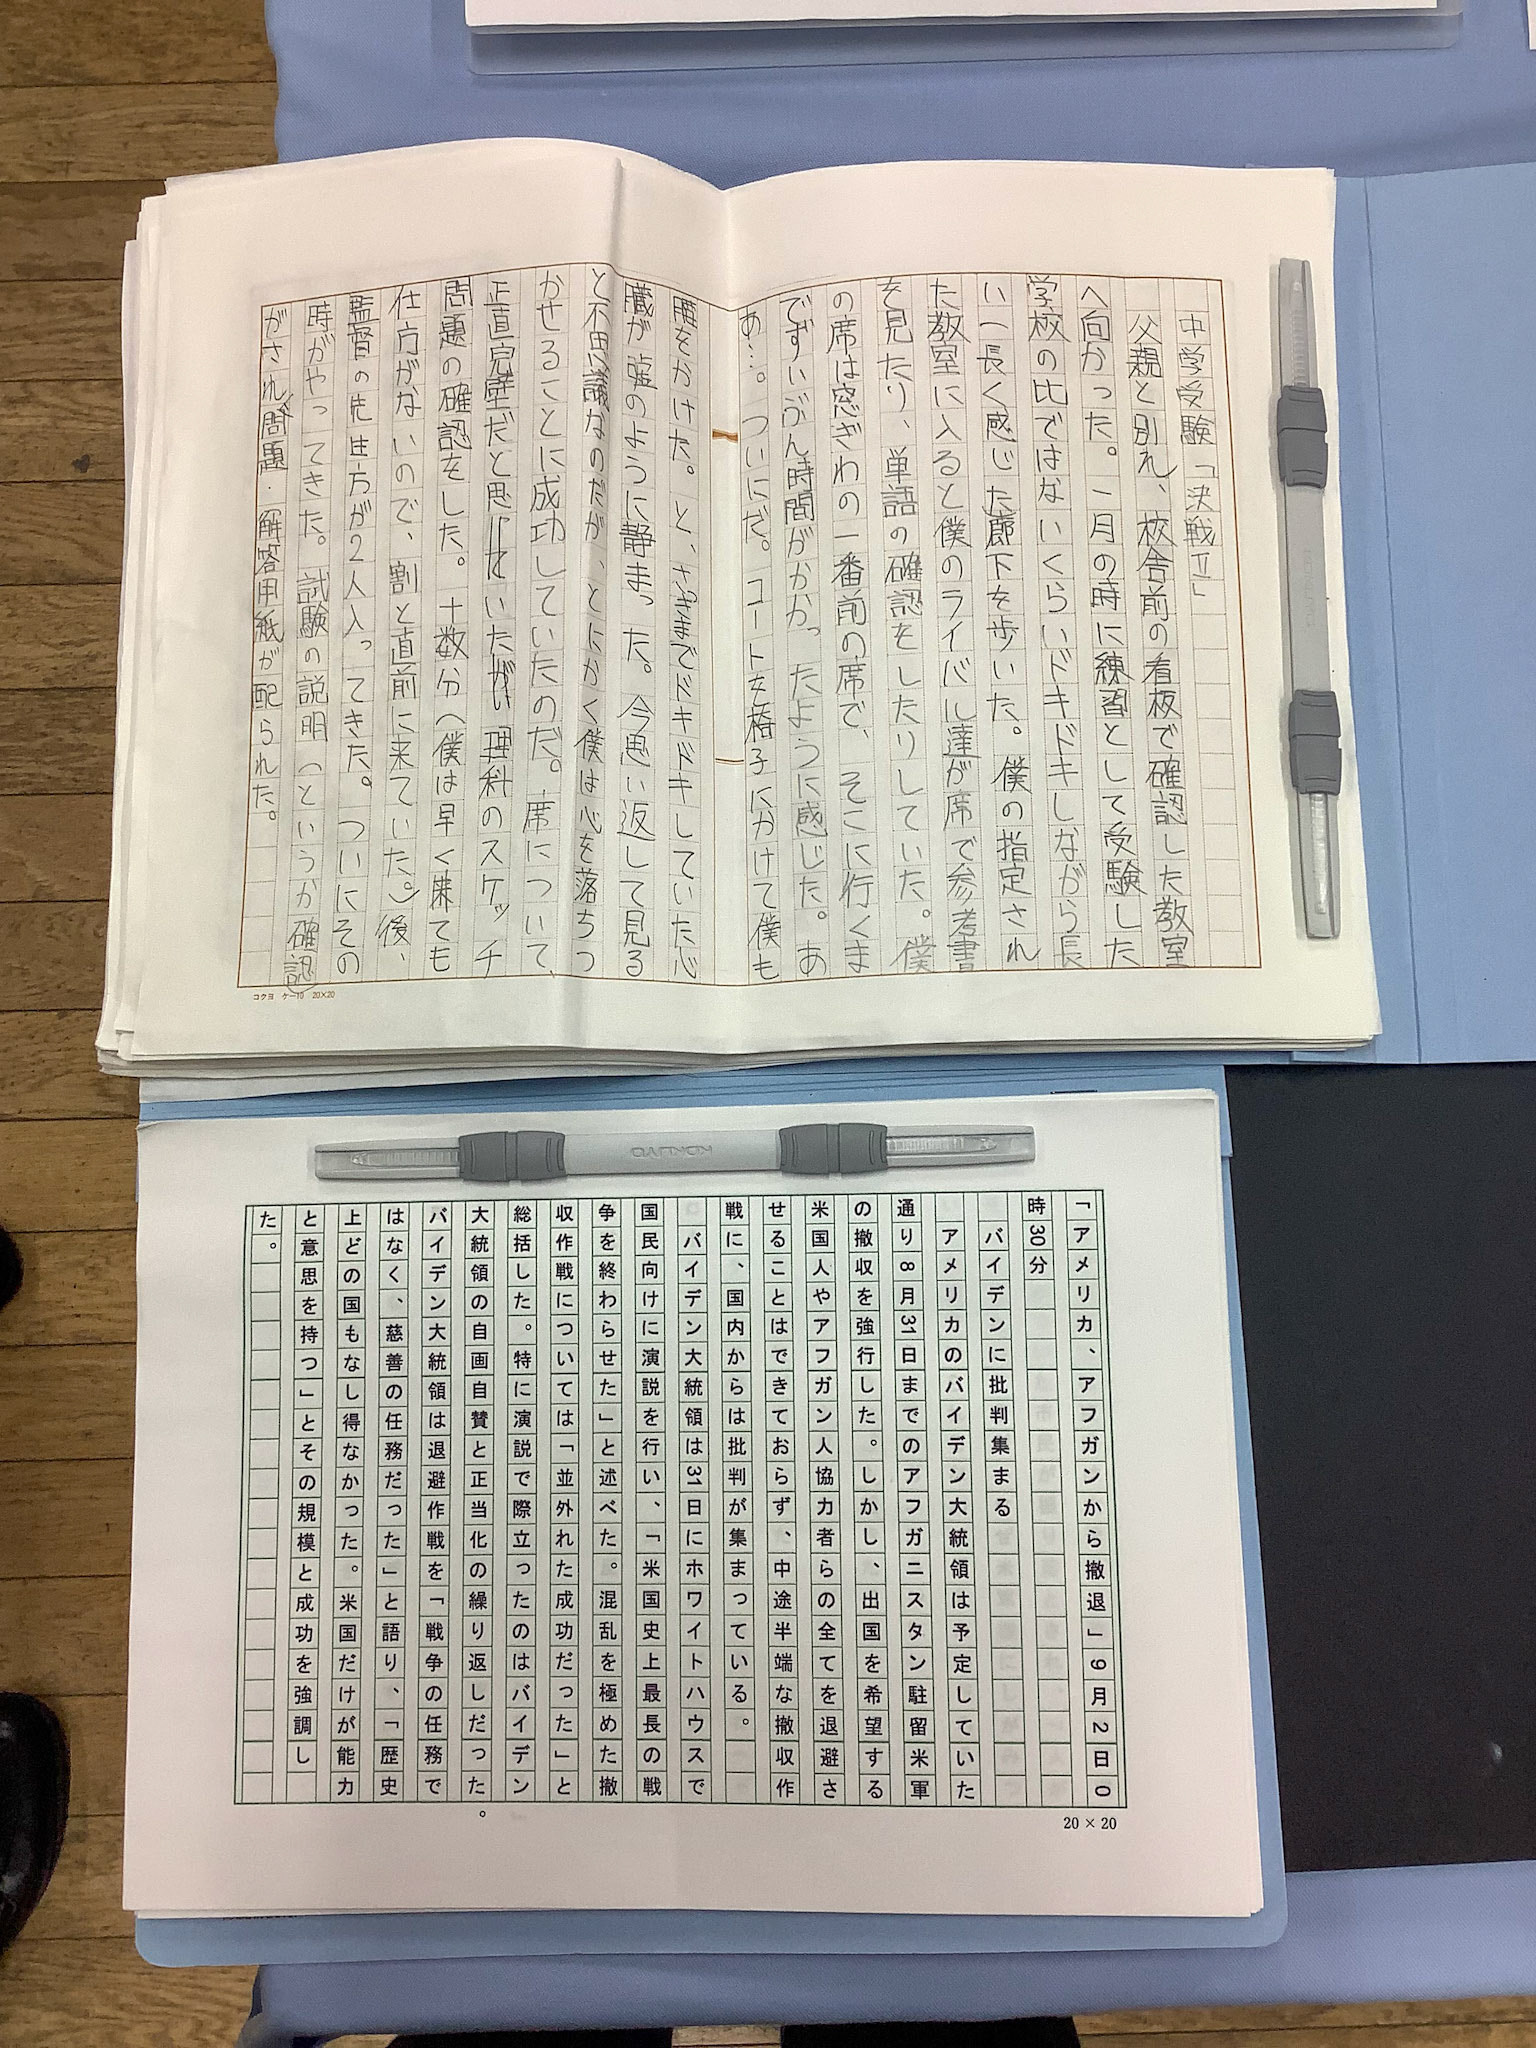 中学受験「決戦Ⅱ」
父親と別れ、校舎前の看板で確認した教室
へ向かった。一月の時に練習として受験した
学校の比ではないくらいドキドキしながら長
い(長く感じた)廊下を歩いた。僕の指定され
た教室に入ると僕のライバル達が席で参考書
を見たり、単語の確認をしたりしていた。僕
の席は窓ぎわの一番前の席で、そこに行くま
でずいぶん時間がかかったように感じた。あ
あ…。ついにだ。コートを椅子にかけて僕も
腰をかけた。と、さっきまでドキドキしていた心
臓が嘘のように静まった。今思い返して見る
と不思議なのだが、とにかく僕は心を落ちつ
かせることに成功していたのだ。席について、
正直完璧だと思っていたが理科のスケッチ
問題の確認をした。十数分(僕は早く来ても
仕方がないので、割と直前に来ていた。)後、
監督の先生方が2人入ってきた。ついにその
時がやってきた。試験の説明(というか確認)
がされ、問題・解答用紙が配られた。
コクヨ ケー10 20×20
KOKUYO
KOKUYO
「アメリカ、アフガンから撤退」9月2日0
時30分
バイデンに批判集まる
アメリカのバイデン大統領は予定していた
通り8月31日までのアフガニスタン駐留米軍
の撤収を強行した。しかし、出国を希望する
米国人やアフガン人協力者らの全てを退避さ
せることはできておらず、中途半端な撤収作
戦に、国内からは批判が集まっている。
バイデン大統領は31日にホワイトハウスで
国民向けに演説を行い、「米国史上最長の戦
争を終わらせた」と述べた。混乱を極めた撤
収作戦については「並外れた成功だった」と
総括した。特に演説で際立ったのはバイデン
大統領の自画自賛と正当化の繰り返しだった。
バイデン大統領は退避作戦を「戦争の任務で
はなく、慈善の任務だった」と語り、「歴史
上どの国もなし得なかった。米国だけが能力
と意思を持つ」とその規模と成功を強調し
た。
20×20